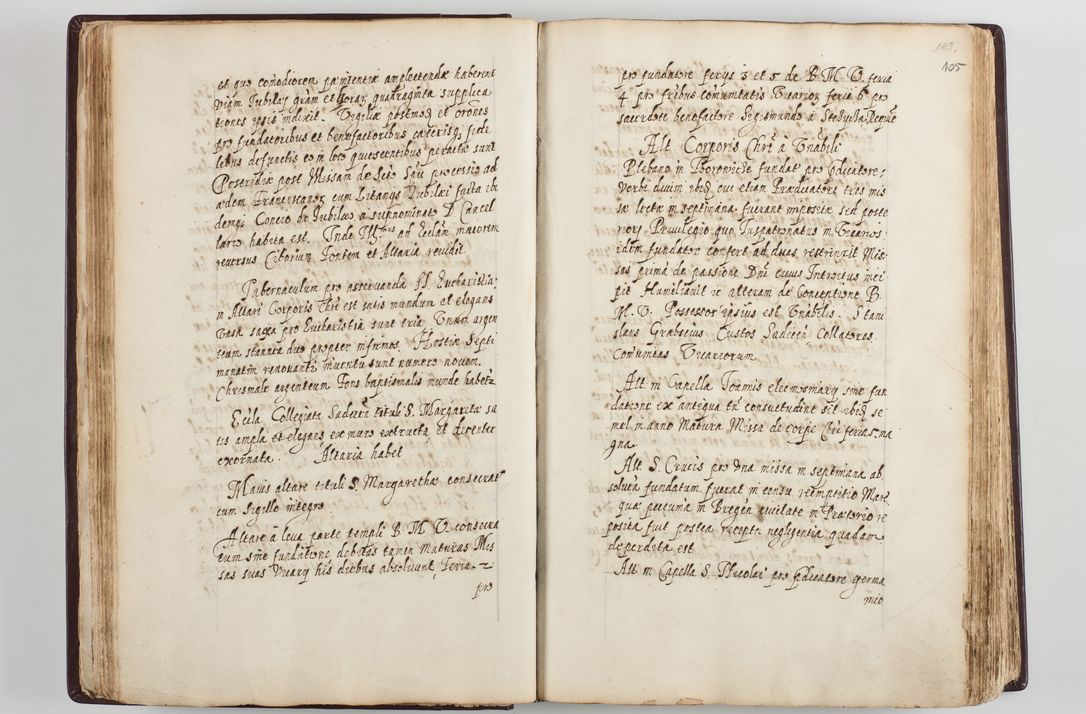 et quo comodiorem pænitentiæ amplectendæ haberent
viam Iubilaj grãm et horaꝝ quadraginta supplica
tiones ipsis indixit. Vigiliæ postmodũ et orõnes
pro fundatoribus et benefactoribus cæterisq; fide
libus defunctis eo in loco quiescentibus peractæ sunt
Postridie post Missam de Scto Spũ processio ad
ædem Franciscanoꝝ cum Litanijs Iubilai facta ibi
demq; Concio de Iubilæo a supnominato D Cancel
lario habita est. Inde Ill^mus ad Ecclãm maiorem
reversus Ciborium Fontem et Altaria revidit.
Tabernaculum pro asservanda SS. Eucharistia
in Altari Corporis Chri est satis mundum et elegans
Vasa sacra pro Eucharistia sunt tria Vnum argen
teum stannea duo propter infirmos. Hostiæ Septi
manatim renovanti inventæ sunt numero novem.
Chrismale argenteum Fons baptismalis munde habetr
Ecclã Collegiata Sadecen tituli S. Margaretæ sa
tis ampla et elegans ex muro extructa et decenter
exornata. Altaria habet
Maius altare tituli S. Margarethæ consecratũ
cum sigillo integro
Altare à leva parte templi B M V. consecra
tum sine fundatione debitas tamen Maturas Mis
sas suas Vicarij his diebus absolvunt, Feria 2
pro
103.
105
pro fundatore ferijs 3 et 5 de B. M. V. feria
4 pro fribus comunitatis Vicarioꝝ feria 6 pro
sacerdote benefactore Segismundo à Requie
Alt. Corporis Chri à Vnabili
Plebano in fundat pro prædicatore
verbi divini ibidẽ cui etiam Prædicatori tres mis
sæ lectæ in septimana fuerant impositæ sed poste
riorj Privilegio quo Iuspatronatus in Vicarios
idem fundator confert ad duas restrinxit Mis
sas prima de passione Dni cuius Introitus inci
pit Humiliavit &c alteram de Conceptione B.
M. V. Possessor ipsius est Vnabilis. Stani
slaus Grabscius Custos Sadecen Collatores.
Comunitas Vicariorum
Alt in Capella Ioannis eleemosinarij sine fun
datione ex antiqua tñ consuetudine sit ibidẽ se
mel in anno Matura Missa de corpe Chri feria 5. ma
gna.
Alt S. Crucis pro vna missa in septimana ab
solvēn fundatum fuerat in censu reemptitio Marc
quæ pecunia in civitate in Prætorio re
posita fuit postea recepta negligentia quadam
deperdita est
Alt in Capella S. Nicolai pro prædicatore germa
nico